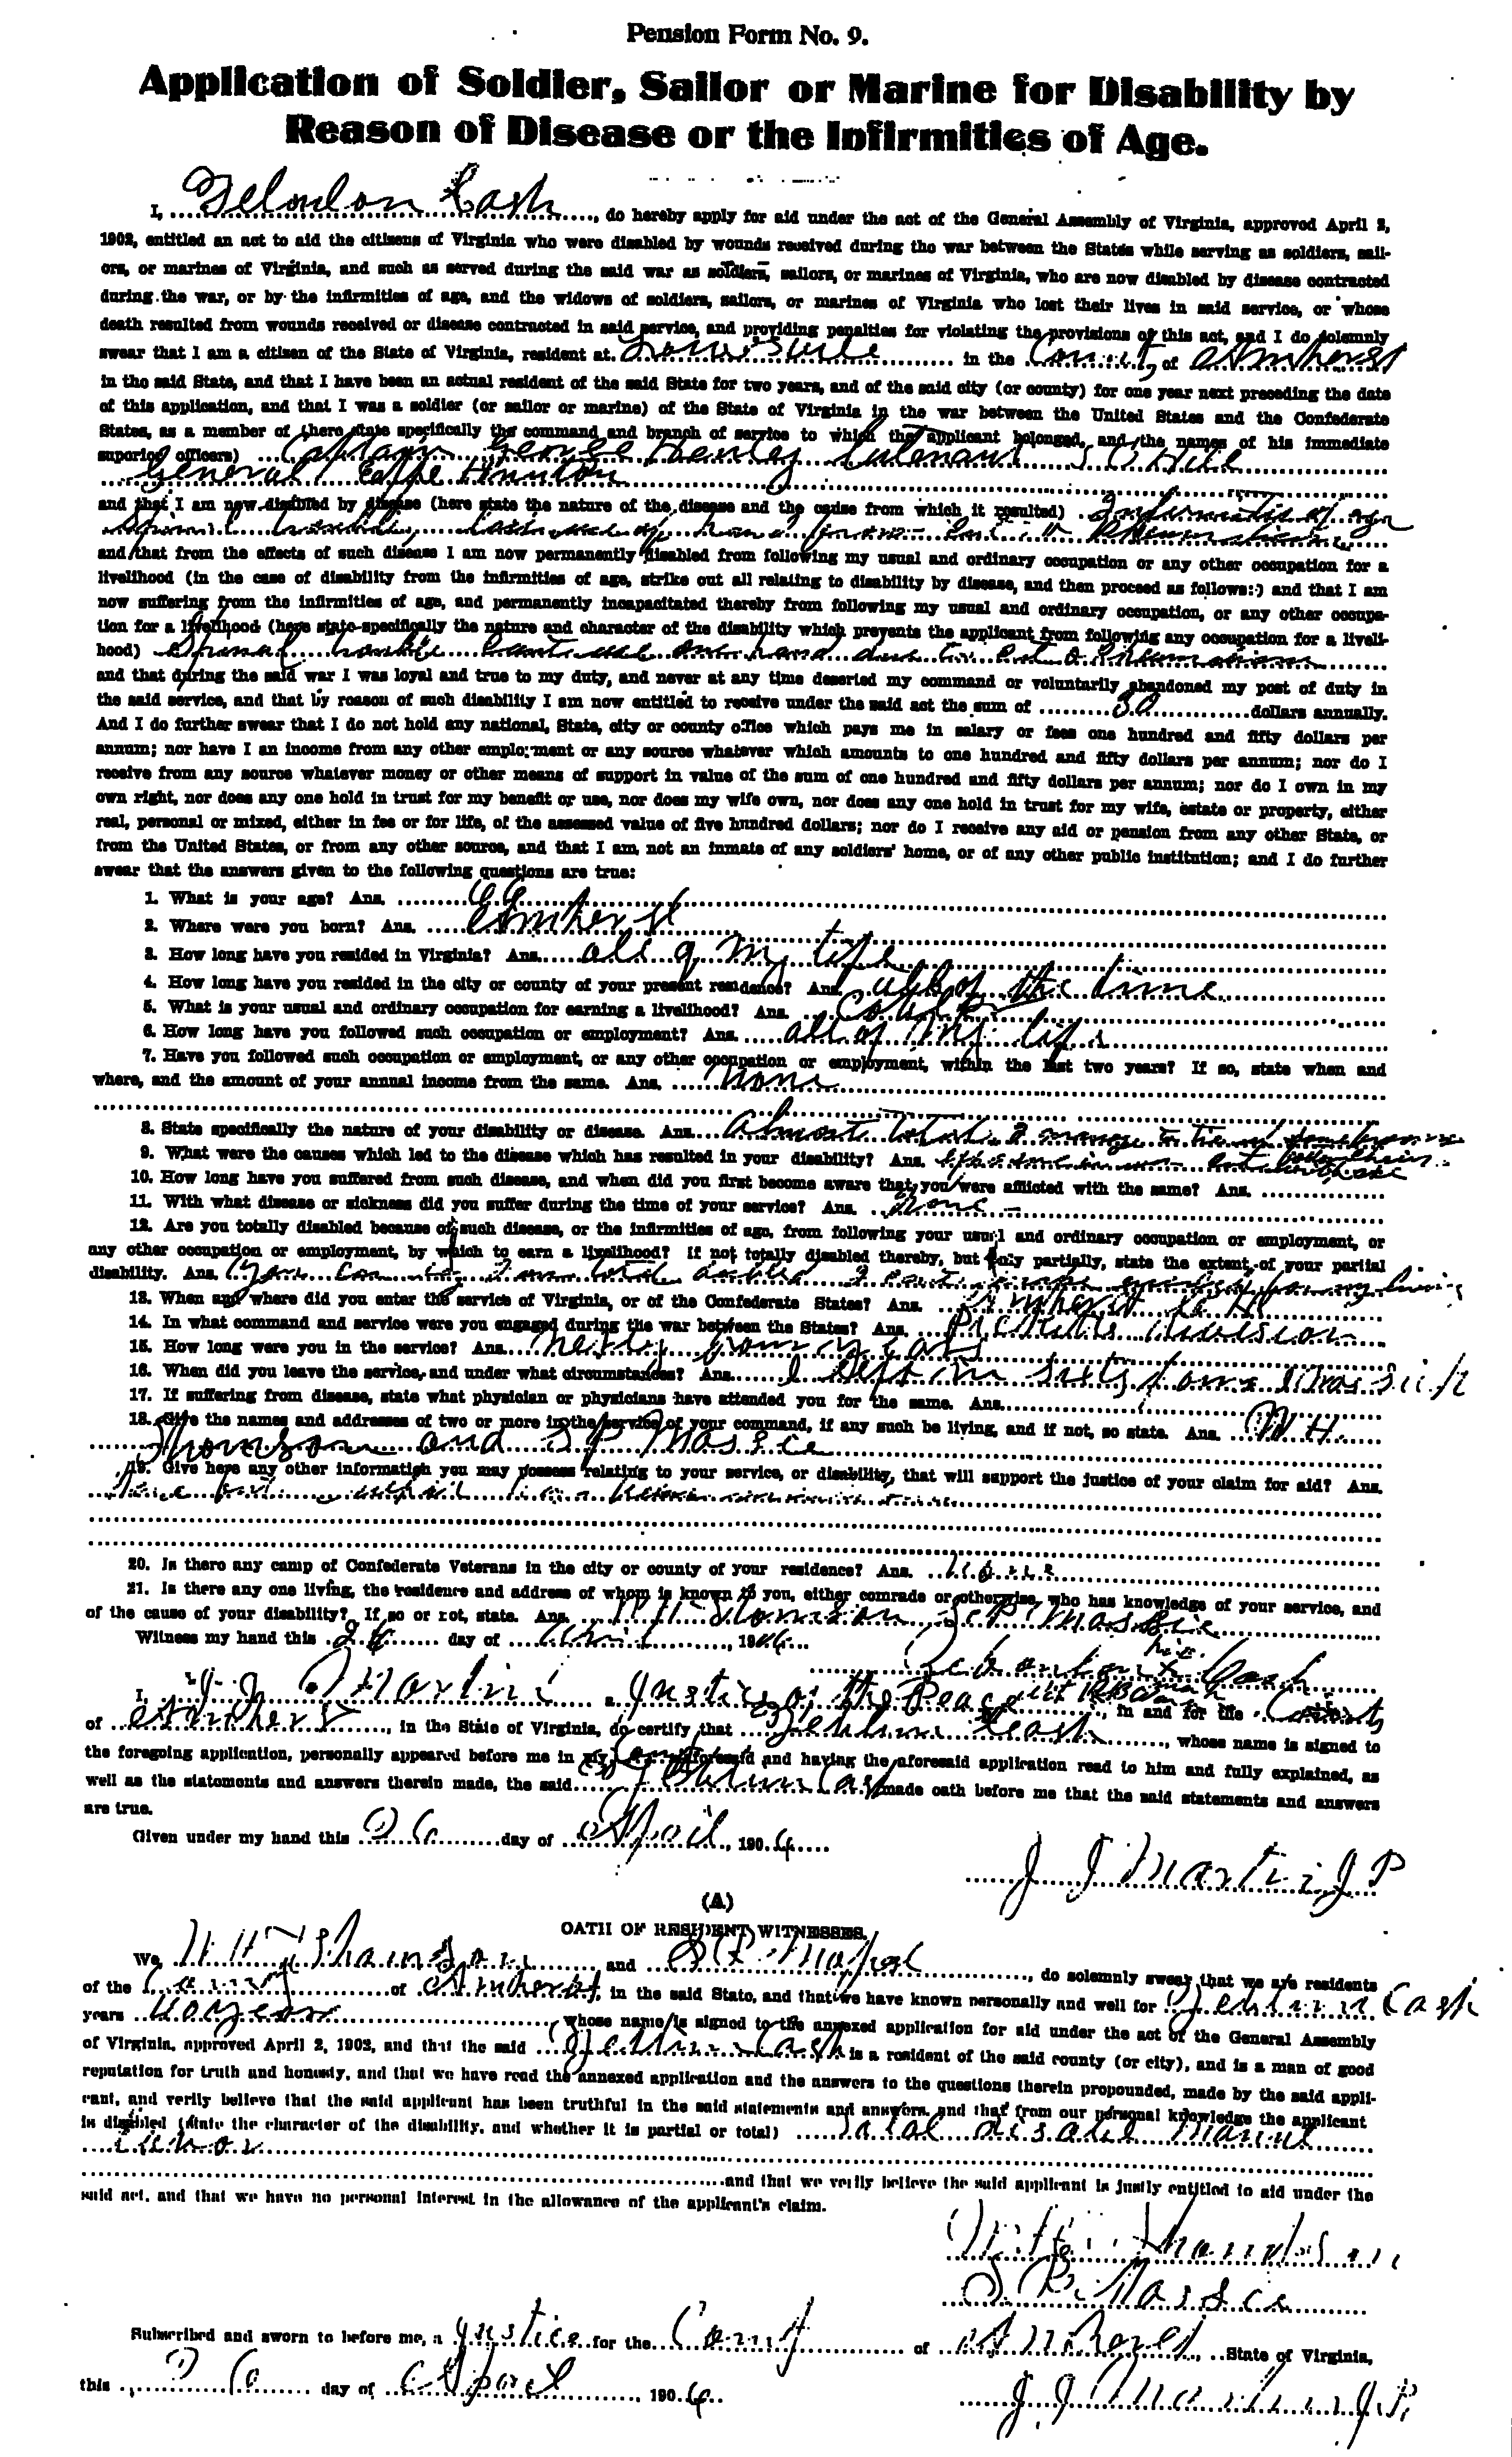 Pension Form No. 9.
Application of Soldier, Sailor or Marine for Disability by
Reason of Disease or the Infirmities of Age.
I, Cash, do hereby apply for aid under the act of the General Assembly of Virginia, approved April 2,
1902, entitled an act to aid the citizens of Virginia who were disabled by wounds received during the war between the States while serving as soldiers, sail-
ors, or marines of Virginia, and such as served during the said war as soldiers, sailors, or marines of Virginia, who are now disabled by disease contracted
during the war, or by the infirmities of age, and the widows of soldiers, sailors, or marines of Virginia who lost their lives in said service, or whose
death resulted from wounds received or disease contracted in said service, and providing penalties for violating the provisions of this act, and I do solemnly
swear that I am a citizen of the State of Virginia, resident at in the County of Amherst
in the said State, and that I have been an actual resident of the said State for two years, and of the said city (or county) for one year next preceding the date
of this application, and that I was a soldier (or sailor or marine) of the State of Virginia in the war between the United States and the Confederate
States, as a member of (here state specifically the command and branch of service to which the applicant belonged, and the names of his immediate
superior officers) Captain George Henley Lutenant Hill
General Eappe Hunton
and that I am now disabled by disease (here state the nature of the disease and the cause from which it resulted) Infirmities of age
Spinal trouble hand from Rheumatism
and that from the effects of such disease I am now permanently disabled from following my usual and ordinary occupation or any other occupation for a
livelihood (in the case of disability from the infirmities of age, strike out all relating to disability by disease, and then proceed as follows:) and that I am
now suffering from the infirmities of age, and permanently incapacitated thereby from following my usual and ordinary occupation, or any other occupa-
tion for a livelihood (here state specifically the nature and character of the disability which prevents the applicant from following any occupation for a liveli-
hood) Spinal trouble cant use one hand due to cut & Rheumatism
and that during the said war I was loyal and true to my duty, and never at any time deserted my command or voluntarily abandoned my post of duty in
the said service, and that by reason of such disability I am now entitled to receive under the said act the sum of 30 dollars annually.
And I do further swear that I do not hold any national, State, city or county office which pays me in salary or fees one hundred and fifty dollars per
annum; nor have I an income from any other employment or any source whatever which amounts to one hundred and fifty dollars per annum; nor do I
receive from any source whatever money or other means of support in value of the sum of one hundred and fifty dollars per annum; nor do I own in my
own right, nor does any one hold in trust for my benefit or use, nor does my wife own, nor does any one hold in trust for my wife, estate or property, either
real, personal or mixed, either in fee or for life, of the assessed value of five hundred dollars; nor do I receive any aid or pension from any other State, or
from the United States, or from any other source, and that I am not an inmate of any soldiers' home, or of any other public institution; and I do further
swear that the answers given to the following questions are true:
1. What is your age? Ans. 66
2. Where were you born? Ans. Amherst
3. How long have you resided in Virginia? Ans. all of my life
4. How long have you resided in the city or county of your present residence? Ans. all of the time
5. What is your usual and ordinary occupation for earning a livelihood? Ans.
6. How long have you followed such occupation or employment? Ans. all of my life
7. Have you followed such occupation or employment, or any other occupation or employment, within the last two years? If so, state when and
where, and the amount of your annual income from the same. Ans. none
8. State specifically the nature of your disability or disease. Ans. Almost total. I manage to tie
9. What were the causes which led to the disease which has resulted in your disability? Ans.
10. How long have you suffered from such disease, and when did you first become aware that you were afflicted with the same? Ans.
11. With what disease or sickness did you suffer during the time of your service? Ans. none
12. Are you totally disabled because of such disease, or the infirmities of age, from following your usual and ordinary occupation or employment, or
any other occupation or employment, by which to earn a livelihood? If not totally disabled thereby, but only partially, state the extent of your partial
disability. Ans. I am total I cant my living
13. When and where did you enter the service of Virginia, or of the Confederate States? Ans. Amherst
14. In what command and service were you engaged during the war between the States? Ans. Picketts Division
15. How long were you in the service? Ans. nearly four years
16. When did you leave the service, and under what circumstances? Ans. I left in sixty four I was sick
17. If suffering from disease, state what physician or physicians have attended you for the same. Ans.
18. Give the names and addresses of two or more in the service of your command, if any such be living, and if not, so state. Ans. W H.
Thomson and S P Massie
19. Give here any other information you may possess relating to your service, or disability, that will support the justice of your claim for aid? Ans.
20. Is there any camp of Confederate Veterans in the city or county of your residence? Ans.
21. Is there any one living, the residence and address of whom is known to you, either comrade or otherwise, who has knowledge of your service, and
of the cause of your disability? If so or not, state. Ans. W H Thomson S. P. Massie
Witness my hand this 26 day of April, 1904
his
x Cash
I, J J Martin a Justice of the Peace, in and for the County
of Amherst, in the State of Virginia, do certify that Cash, whose name is signed to
the foregoing application, personally appeared before me in my County aforesaid and having the aforesaid application read to him and fully explained, as
well as the statements and answers therein made, the said Cash made oath before me that the said statements and answers
are true.
Given under my hand this 26 day of April, 1904
J J Martin J P
(A)
OATH OF RESIDENT WITNESSES.
We, W H Thomson and S P Massie, do solemnly swear that we are residents
of the County of Amherst, in the said State, and that we have known personally and well for Cash
years 40 years, whose name is signed to the annexed application for aid under the act of the General Assembly
of Virginia, approved April 2, 1902, and that the said Cash is a resident of the said county (or city), and is a man of good
reputation for truth and honesty, and that we have read the annexed application and the answers to the questions therein propounded, made by the said appli-
cant, and verily believe that the said applicant has been truthful in the said statements and answers, and that from our personal knowledge the applicant
is disabled (state the character of the disability, and whether it is partial or total) Total disabled manuel
labor
and that we verily believe the said applicant is justly entitled to aid under the
said act, and that we have no personal interest in the allowance of the applicant's claim.
W. H. Thomson
S. P. Massie
Subscribed and sworn to before me, a Justice for the County of Amherst, State of Virginia,
this 26 day of April, 1904
J. J Martin J. P.